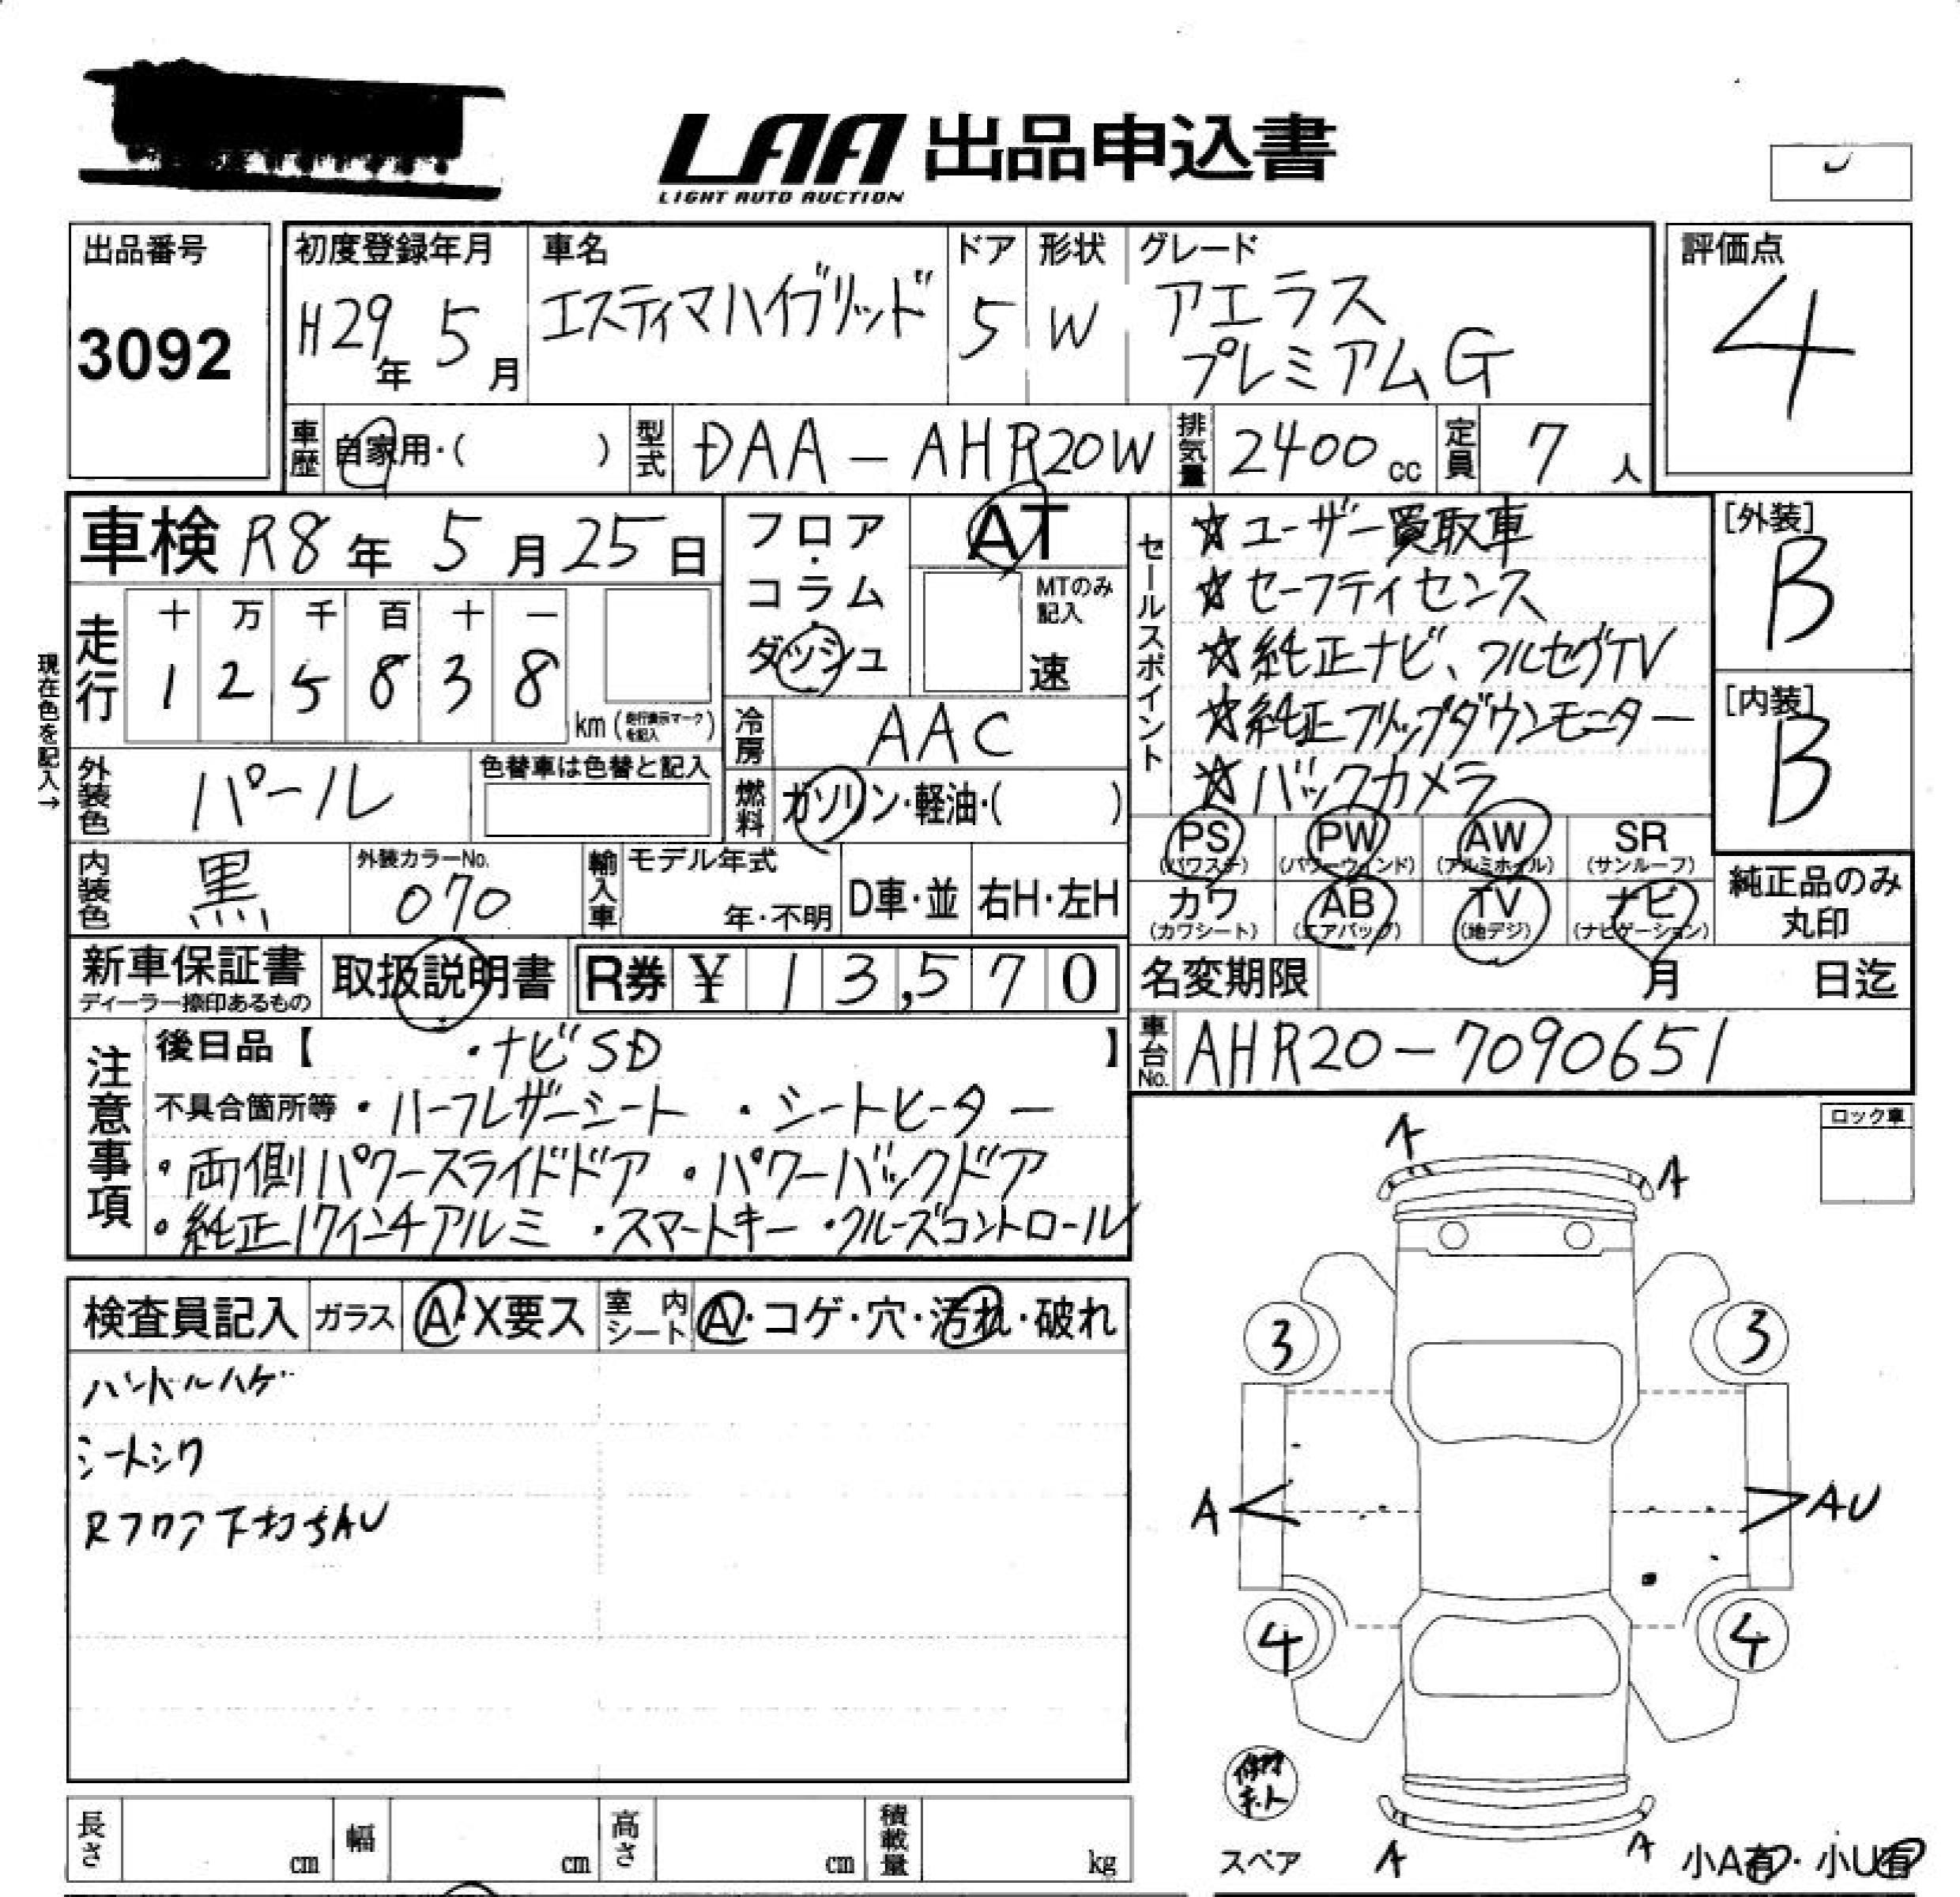 LAA 出品申込書
LIGHT AUTO AUCTION
出品番号
3092
初度登録年月
H29年 5月
車名
エスティマハイブリッド
ドア
5
形状
W
グレード
アエラス
プレミアムG
評価点
4
車歴 自家用・( )
型式 DAA-AHR20W
排気量 2400cc
定員 7人
車検 R8年 5月25日
フロア・コラム・ダッシュ
AT
MTのみ記入
速
走行
十 万 千 百 十 一
1 2 5 8 3 8
km (走行表示マークを記入)
現在色を記入→
冷房 AAC
外装色 パール
色替車は色替と記入
燃料 ガソリン・軽油・( )
内装色 黒
外装カラーNo.
070
輸入車 モデル年式
年・不明
D車・並
右H・左H
セールスポイント
☆ユーザー買取車
☆セーフティセンス
☆純正ナビ、フルセグTV
☆純正フリップダウンモニター
☆バックカメラ
[外装]
B
[内装]
B
PS (パワステ)
PW (パワーウィンド)
AW (アルミホイル)
SR (サンルーフ)
カワ (カワシート)
AB (エアバッグ)
TV (地デジ)
ナビ (ナビゲーション)
純正品のみ丸印
新車保証書
ディーラー捺印あるもの
取扱説明書
R券 ¥ 13,570
名変期限 月 日迄
車台No. AHR20-7090651
注意事項
後日品【 ・ナビSD 】
不具合箇所等 ・ハーフレザーシート ・シートヒーター
・両側パワースライドドア ・パワーバックドア
・純正17インチアルミ ・スマートキー ・クルーズコントロール
ロック車
検査員記入
ガラス A・X要ス
室内シート A・コゲ・穴・汚れ・破れ
ハンドルハゲ
シートシワ
Rフロア下打ちAU
A
A
3
3
A
AU
4
4
スペア
A
A
小A有・小U有
長さ cm
幅 cm
高さ cm
積載量 kg